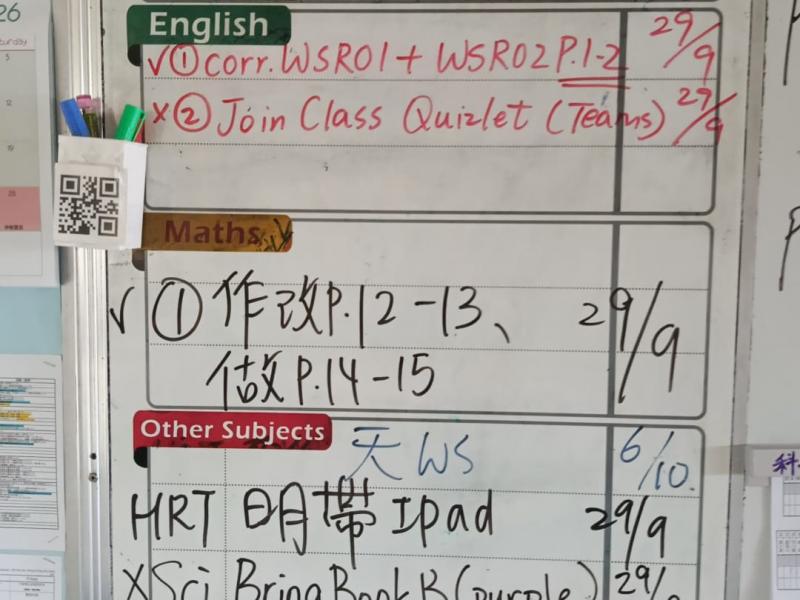 26
English
√ ① corr. WSR01 + WSR02 P.1-2 29/9
× ② Join Class Quizlet (Teams) 29/9
Maths
√ ① 作改P.12-13、 29/9
做P.14-15
Other Subjects
天 WS 6/10
HRT 明帶 Ipad 29/9
× Sci Bring Book B (purple) 29/
科